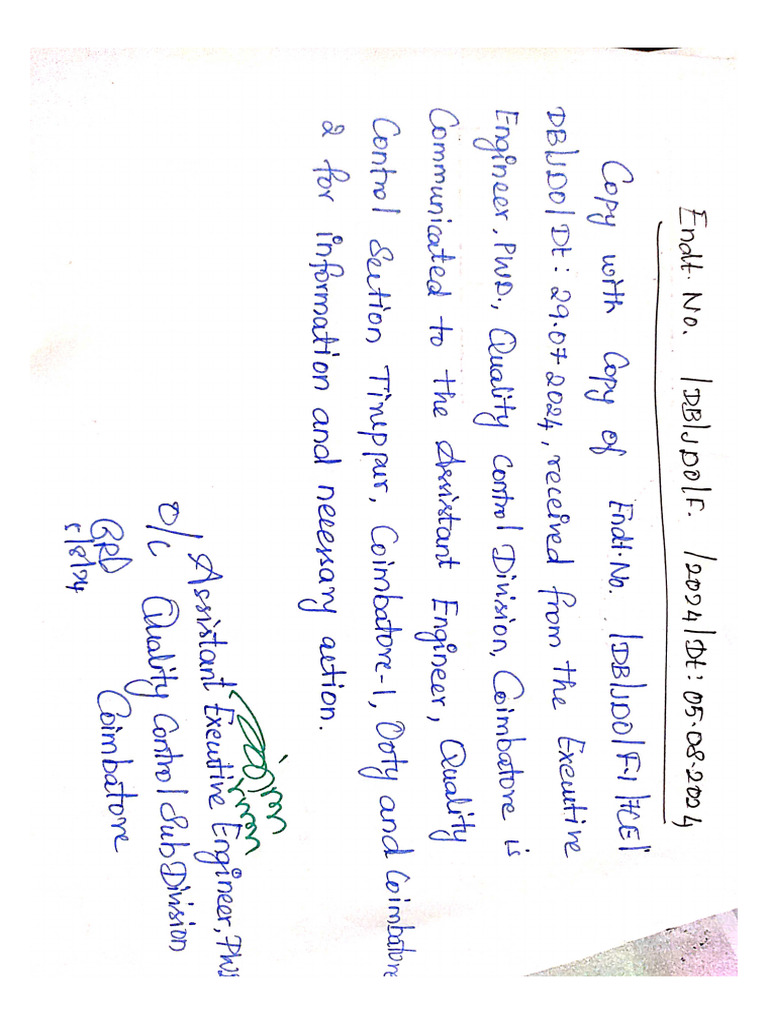 Endt. No. /DB/JDO/F. /2024/Dt: 05.08.2024
Copy with Copy of Endt. No. /DB/JDO/F-1/HCE/
DB/JDO/Dt: 29.07.2024, received from the Executive
Engineer, PWD., Quality Control Division, Coimbatore is
Communicated to the Assistant Engineer, Quality
Control Section Tiruppur, Coimbatore-1, Ooty and Coimbatore
2 for information and necessary action.
Assistant Executive Engineer, PWD
O/c Quality Control Sub Division
Coimbatore
5/8/24